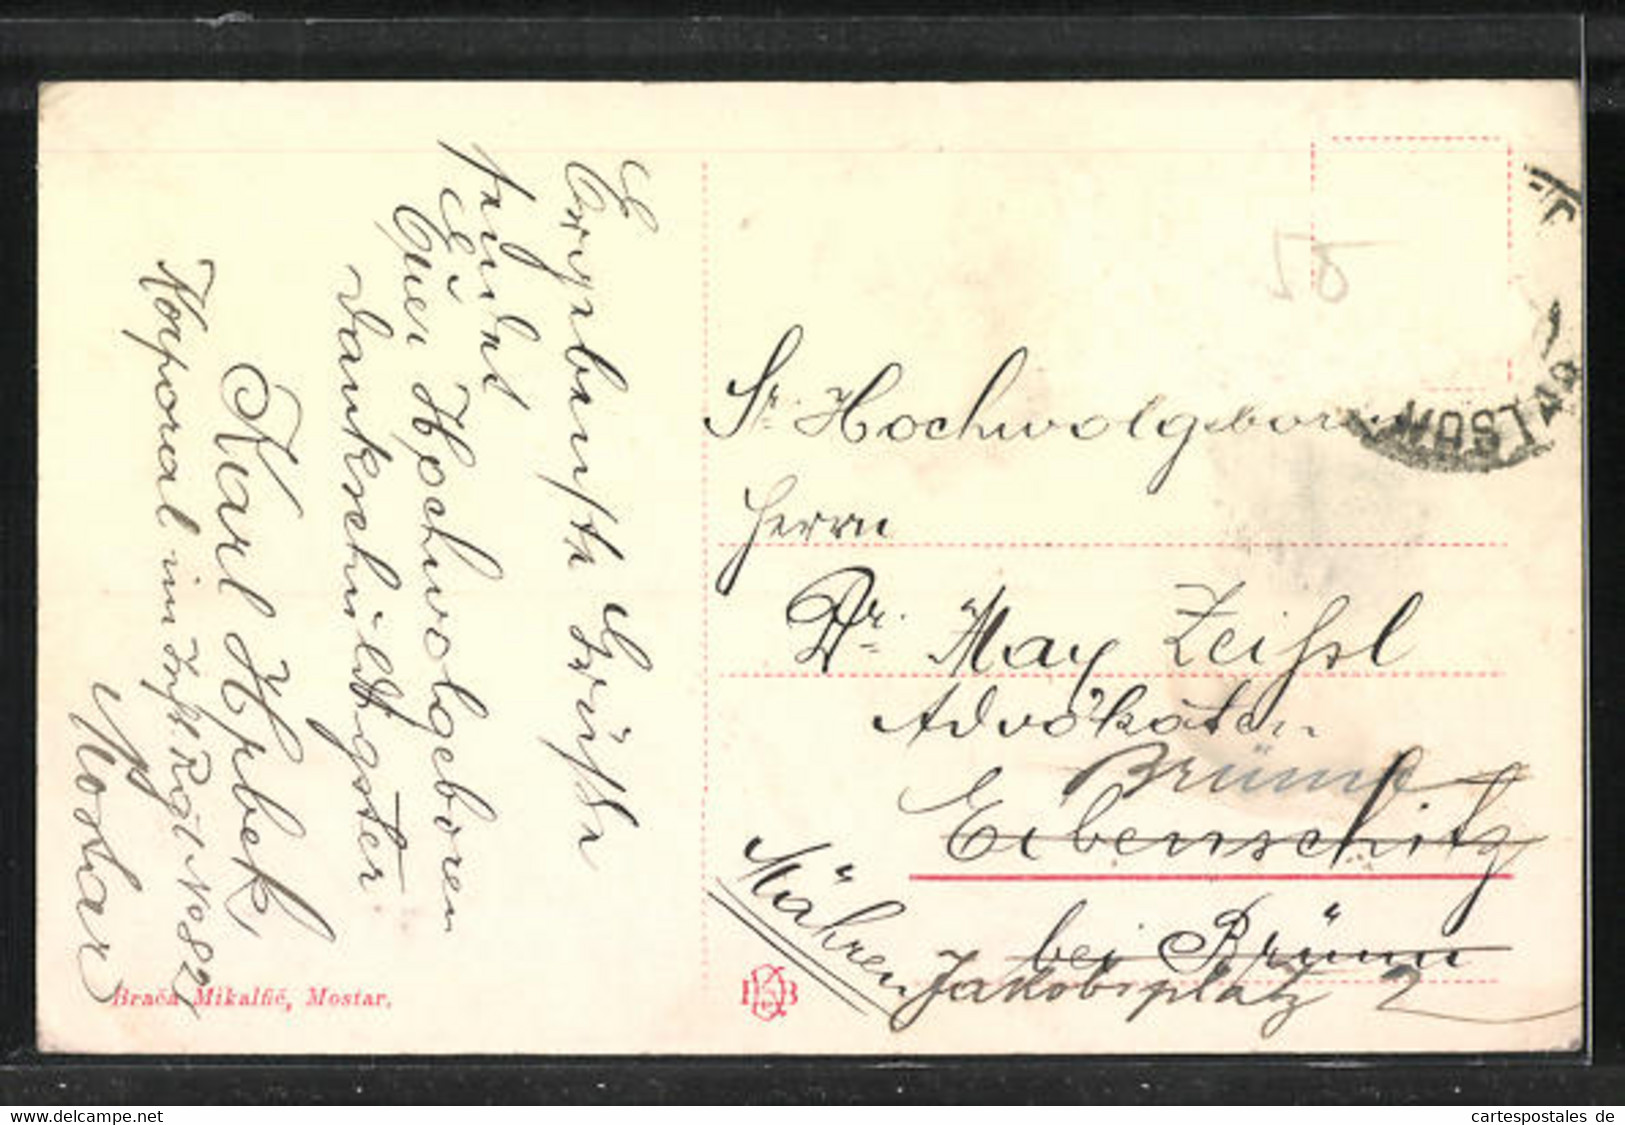 Ergebenste Grüße
sendet
Euer Hochwolgeboren
dankschuldigster
Karl
Korporal im Inft. Rgt No 82
Mostar
Brača Mikalfič, Mostar.
58
MOSTAR
Sr. Hochwolgeboren
Herrn
Dr. Max Zeissl
Advokaten
Brünn
Eibenschitz
bei Brünn
Mähren
Jakobsplatz 2
www.delcampe.net
cartespostales de